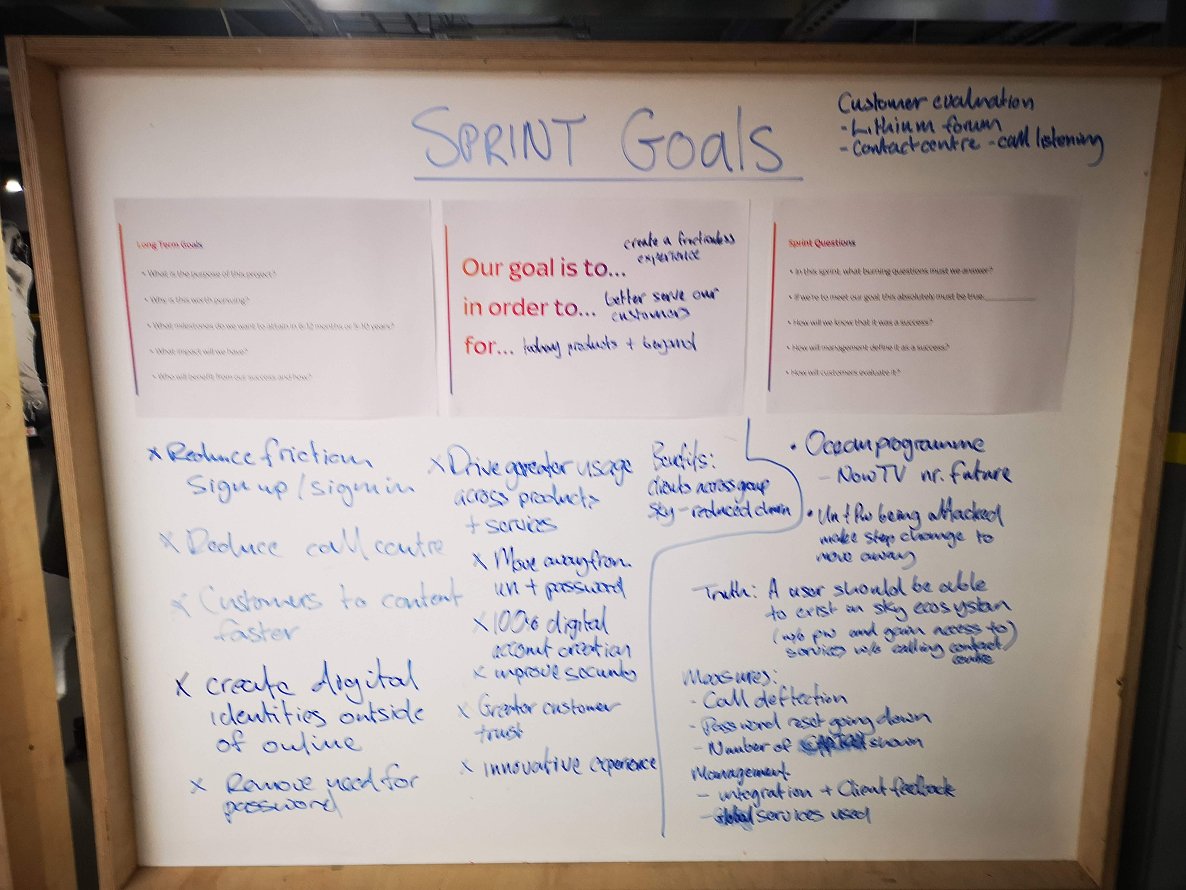 SPRINT GOALS
Customer evaluation
- Lithium forum
- Contact centre - call listening
Long Term Goals
• What is the purpose of this project?
• Why is this worth pursuing?
• What milestones do we want to attain in 6-12 months or 5-10 years?
• What impact will we have?
• Who will benefit from our success and how?
Our goal is to... create a frictionless
experience
in order to... better serve our
customers
for... products + beyond
Sprint Questions
• In this sprint, what burning questions must we answer?
• If we're to meet our goal this absolutely must be true
• How will we know that it was a success?
• How will management define it as a success?
• How will customers evaluate it?
x Reduce friction
Sign up / sign in
x Reduce call centre
x Customers to content
faster
x create digital
identities outside
of online
x Remove need for
password
x Drive greater usage
across products
+ services
x Move away from
un + password
x 100% digital
account creation
x improve security
x Greater customer
trust
x innovative experience
Benefits:
clients across group
sky - reduced churn
• Ocean programme
- NowTV nr. future
• Un + Pw being attacked
make step change to
move away
Truth: A user should be able
to exist in sky ecosystem
(w/o pw and gain access to)
services w/o calling contact
centre
Measures:
- Call deflection
- Password reset going down
- Number of shown
Management
- integration + Client feedback
- services used